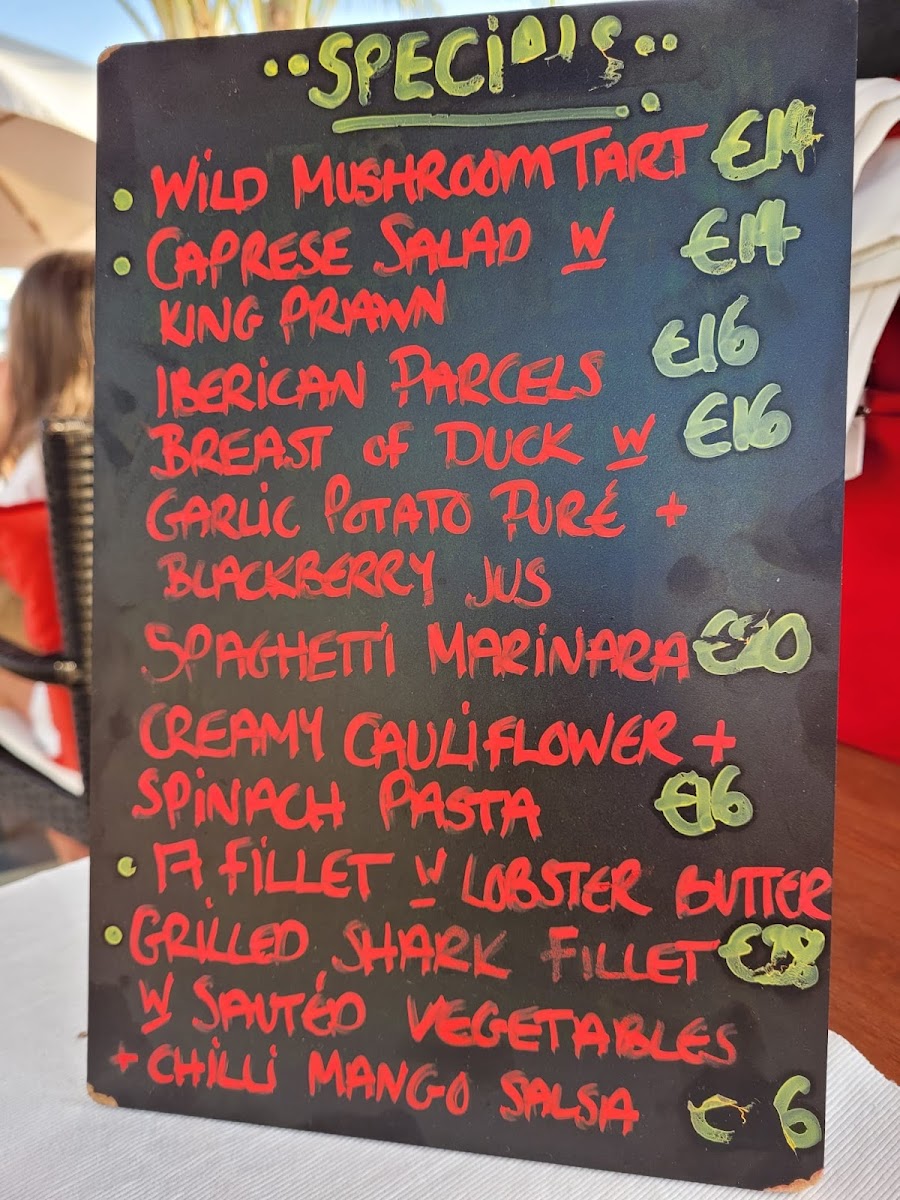 ..SPECiALS..
WiLD MUSHROOM TART €14
CAPRESE SALAD W €14
KING PRAWN
IBERICAN PARCELS €16
BREAST OF DUCK W €16
GARLIC POTATO PURÉ +
BLACKBERRY JUS
SPAGHETTI MARINARA €20
CREAMY CAULIFLOWER +
SPINACH PASTA €16
FILLET W LOBSTER BUTTER
GRILLED SHARK FILLET
W SAUTÉD VEGETABLES
+ CHILLI MANGO SALSA